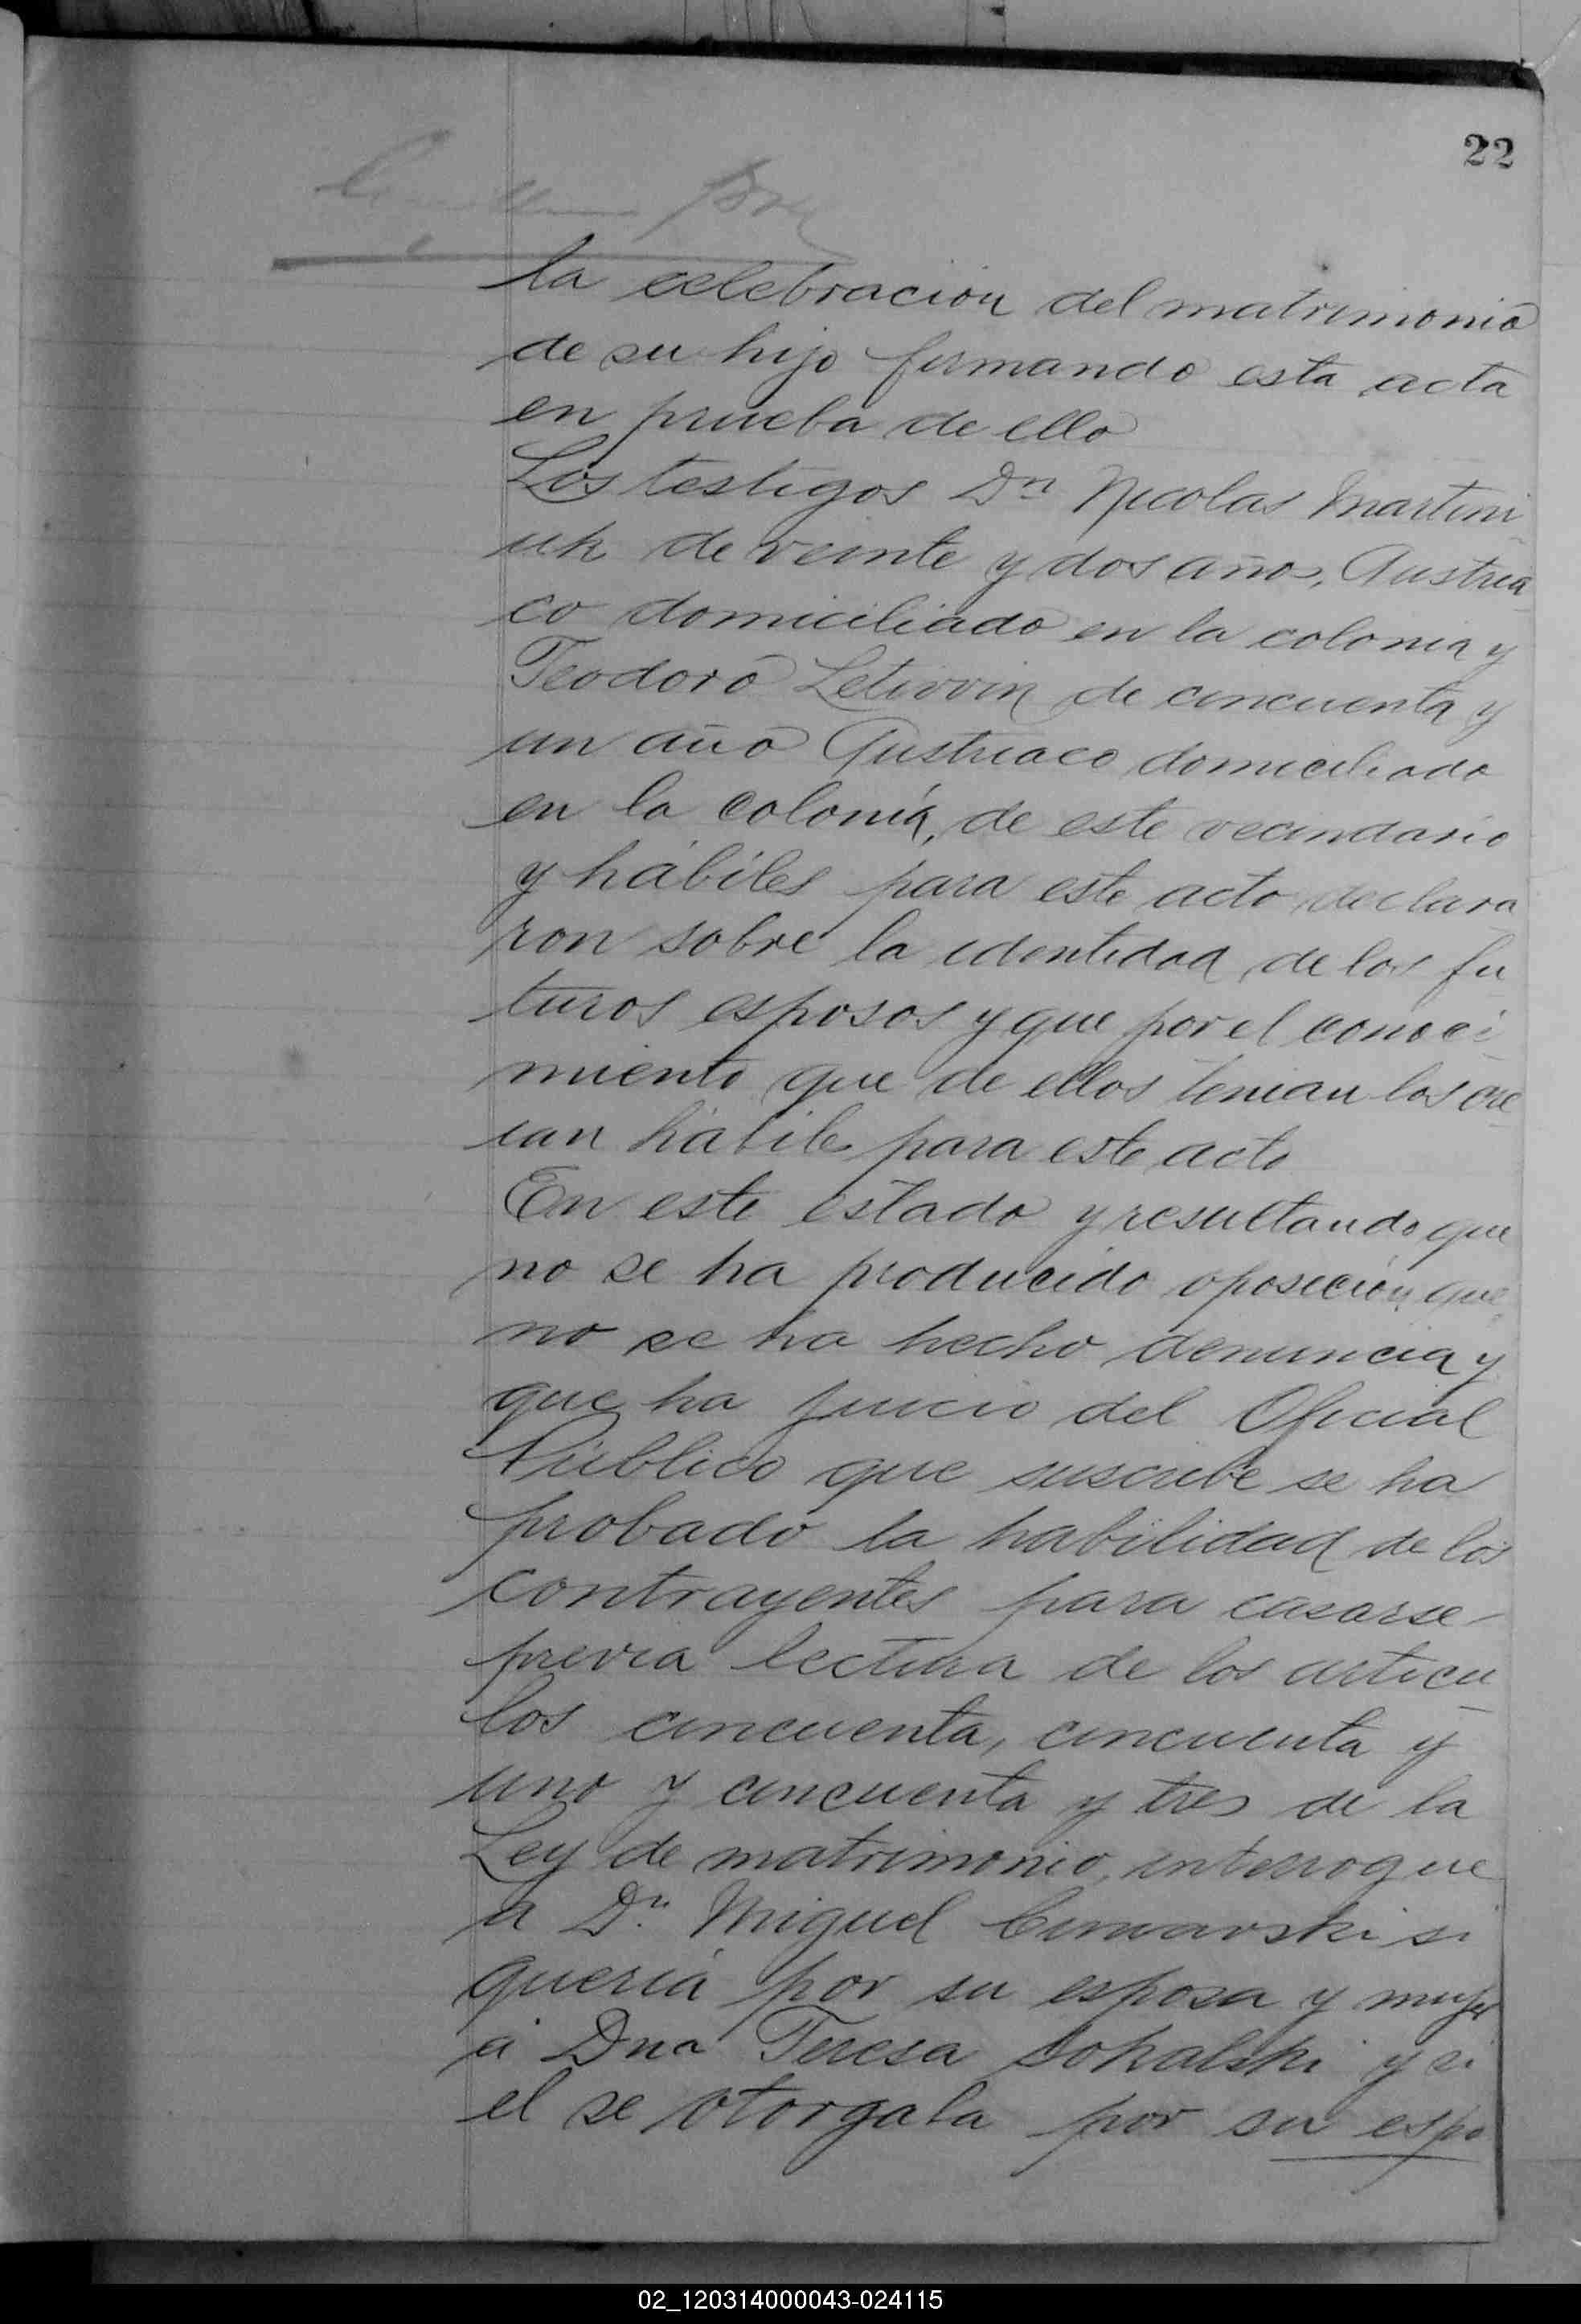 22
la celebracion del matrimonio
de su hijo firmando esta acta
en prueba de ello
Los testigos Dn Nicolas Martini
uk de veinte y dos años, Austria
co domiciliado en la colonia y
Teodoro de cincuenta y
un año Austriaco domiciliado
en la colonia, de este vecindario
y hábiles para este acto declara
ron sobre la identidad de los fu
turos esposos y que por el conoci
miento que de ellos tenian los cre
ian hábile para este acto
En este estado y resultando que
no se ha producido oposicion que
no se ha hecho denuncia y
que ha juicio del Oficial
Público que suscribe se ha
probado la habilidad de los
contrayentes para casarse
previa lectura de los articu
los cincuenta, cincuenta y
uno y cincuenta y tres de la
Ley de matrimonio, interrogue
a Dn. Miguel si
queria por su esposa y mujer
á Dna Teresa Sokalski y si
el se otorgaba por su espo
02_120314000043-024115